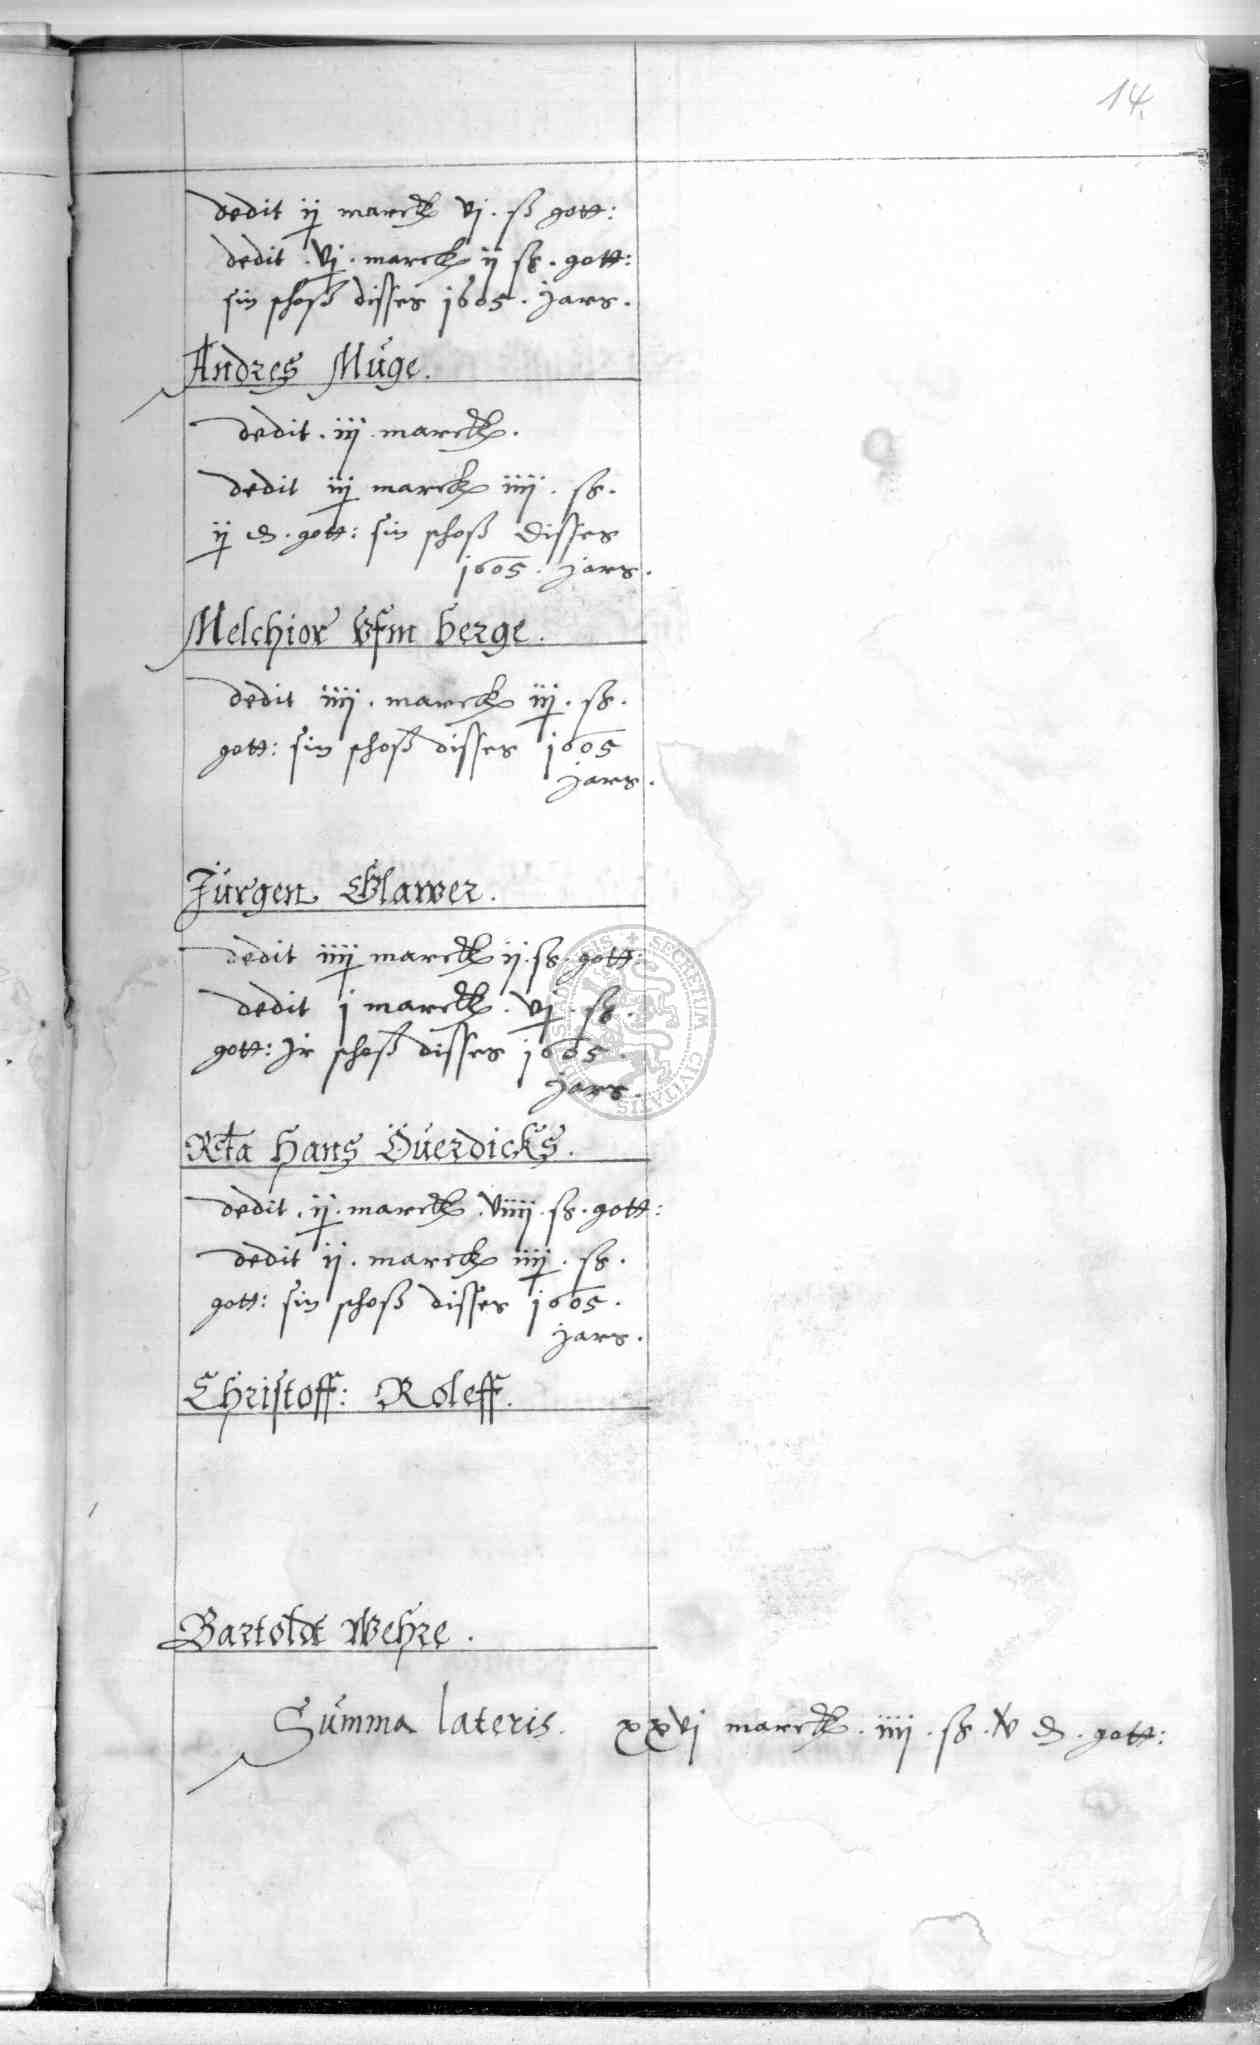 14.
dedit ij marck vj. ß gott:
dedit. vj. marck ij ß. gott:
sin schoß disses 1605. jars.
Andres Müge.
dedit. iij marck.
dedit iij marck iiij. ß.
ij d. gott: sin schoß disses
1605. jars.
Melchior vfm berge.
dedit iiij. marck iij. ß.
gott: sin schoß disses 1605
jars.
Jürgen Glawer.
dedit iiij marck ij. ß. gott:
dedit j marck. vj. ß.
gott: Jr schoß disses 1605.
jars.
Rcta Hans Öuerdicks.
dedit. ij. marck. viiij. ß. gott:
dedit ij. marck iiij. ß.
gott: sin schoß disses 1605.
jars.
Christoff: Roleff.
Bartoldt Wehre.
Summa lateris. xxvj marck. iiij. ß. v d. gott:
SECRETUM CIVITATIS